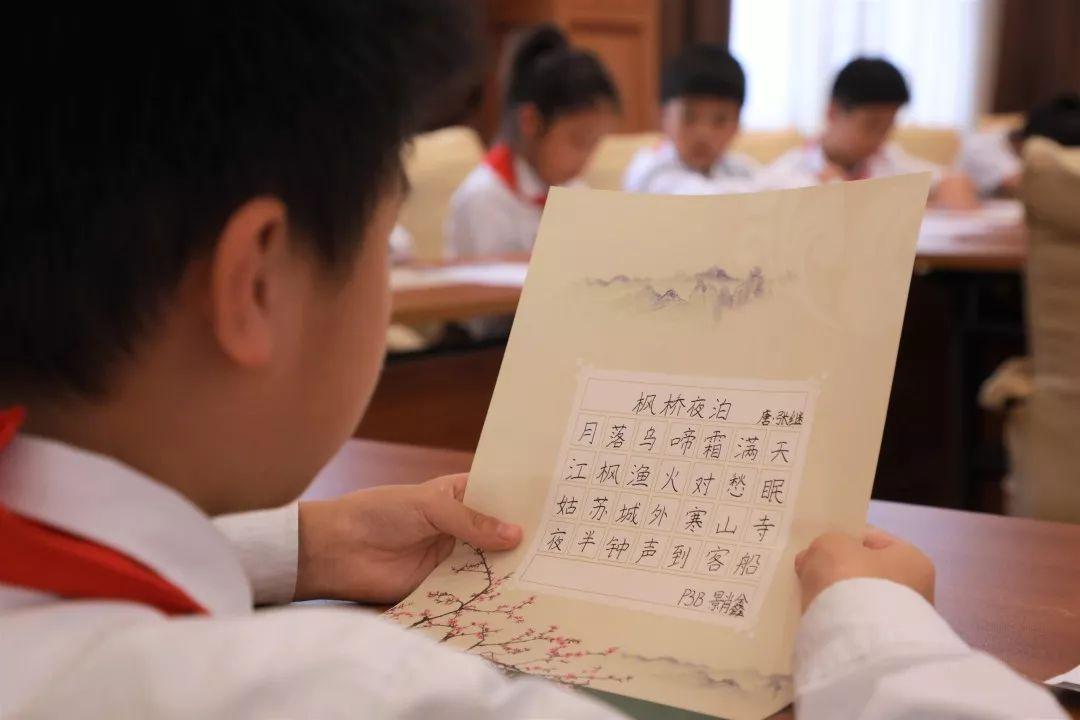 枫桥夜泊
唐·张继
月落乌啼霜满天
江枫渔火对愁眠
姑苏城外寒山寺
夜半钟声到客船
P3B 景肖鑫